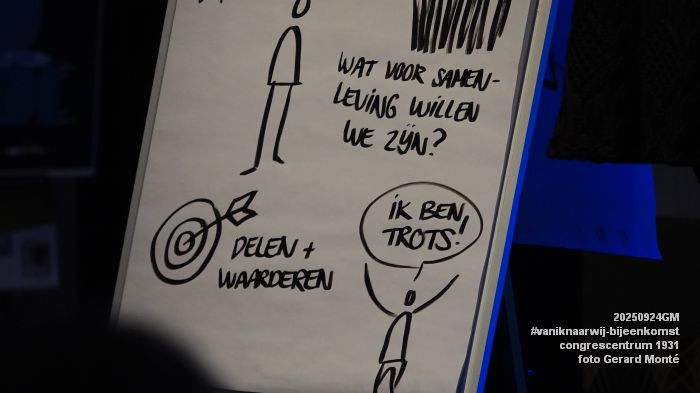 WAT VOOR SAMEN-
LEVING WILLEN
WE ZIJN?
IK BEN
TROTS!
DELEN +
WAARDEREN
20250924GM
#vaniknaarwij-bijeenkomst
congrescentrum 1931
foto Gerard Monté